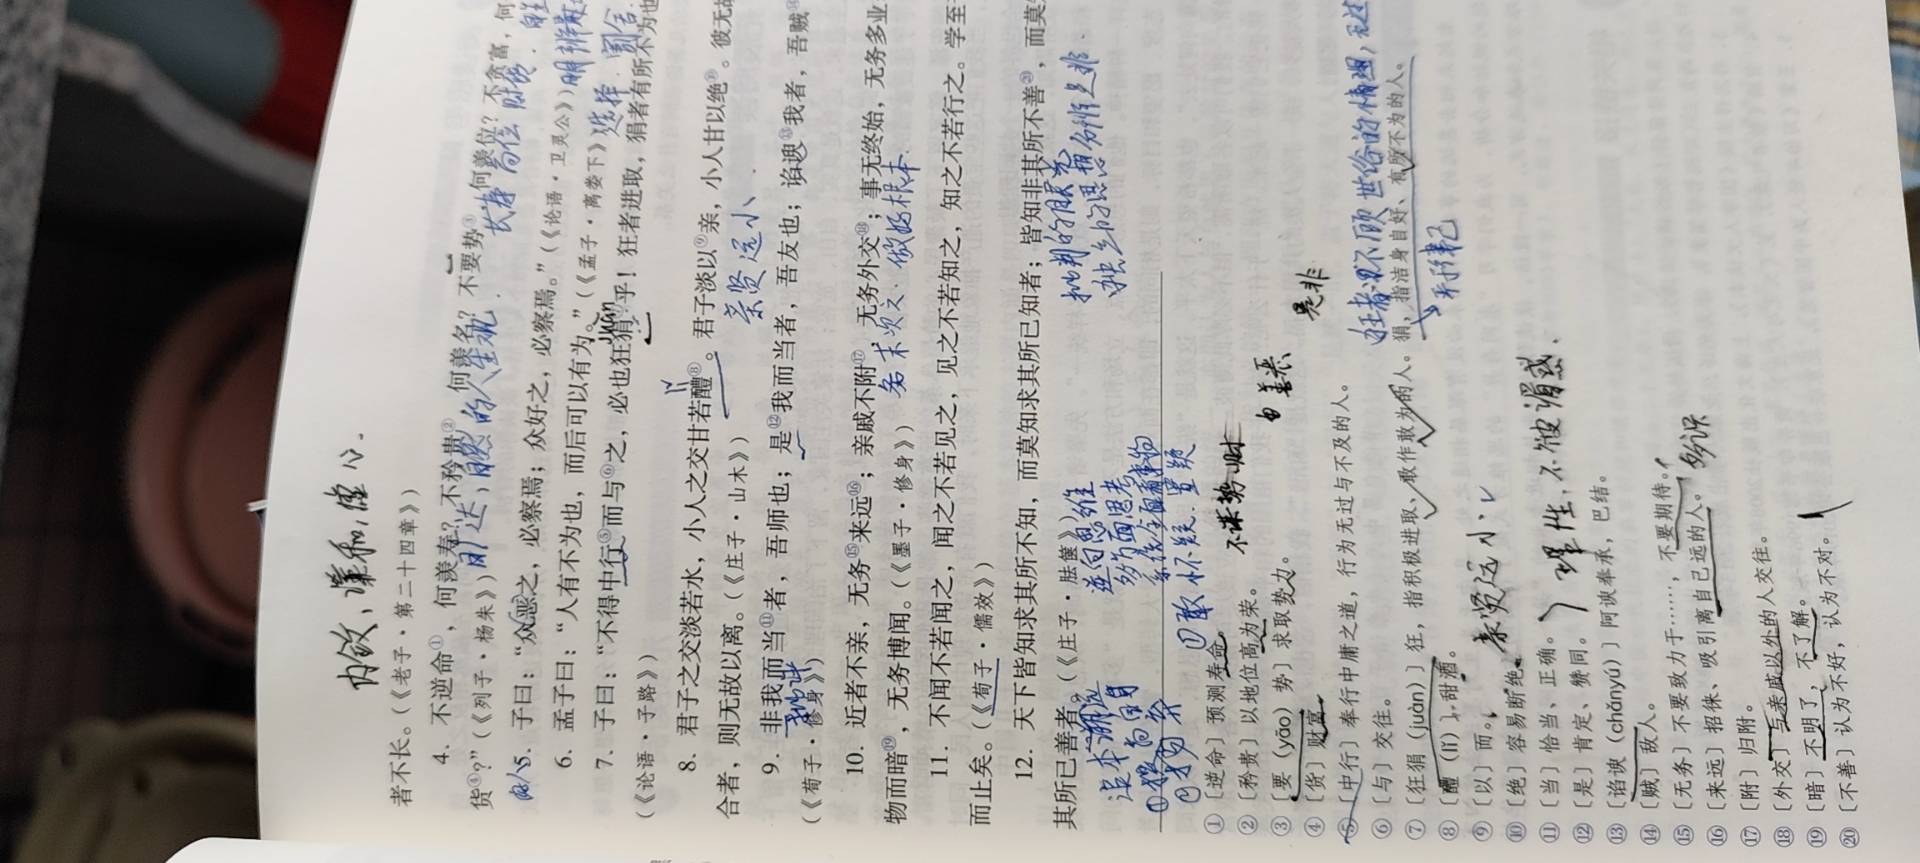 内敛，谦和，虚心。
者不长。(《老子·第二十四章》)
4. 不逆命①，何羡寿？不矜贵②，何羡名？不要势③，何羡位？不贪富，何
货④?”(《列子·杨朱》)
自然的人生观
5. 子曰：“众恶之，必察焉；众好之，必察焉。”(《论语·卫灵公》)明辨
6. 孟子曰：“人有不为也，而后可以有为。”(《孟子·离娄下》)选择
7. 子曰：“不得中行⑤而与⑥之，必也狂狷⑦乎！狂者进取，狷者有所不为也
juàn
(《论语·子路》)
8. 君子之交淡若水，小人之交甘若醴⑧。君子淡以⑨亲，小人甘以绝⑩。彼无故
合者，则无故以离。(《庄子·山木》)
亲贤远小
9. 非我而当⑪者，吾师也；是⑫我而当者，吾友也；谄谀⑬我者，吾贼⑭
(《荀子·修身》)
10. 近者不亲，无务⑮来远⑯；亲戚不附⑰，无务外交⑱；事无终始，无务多业
物而暗⑲，无务博闻。(《墨子·修身》)
务末次之，做好根本
11. 不闻不若闻之，闻之不若见之，见之不若知之，知之不若行之。学至
而止矣。(《荀子·儒效》)
12. 天下皆知求其所不知，而莫知求其所已知者；皆知非其所不善⑳，而莫
其所已善者。(《庄子·胠箧》)
逆向思维
多方面思考
敢怀疑、置疑
① 〔逆命〕预测寿命。
② 〔矜贵〕以地位高为荣。
③ 〔要（yāo）势〕求取势力。
④ 〔货〕财富。
⑤ 〔中行〕奉行中庸之道，行为无过与不及的人。
⑥ 〔与〕交往。
⑦ 〔狂狷（juàn）〕狂，指积极进取、敢作敢为的人。狷，指洁身自好、有所不为的人。
⑧ 〔醴（lǐ）〕甜酒。
⑨ 〔以〕而。
亲贤远小
⑩ 〔绝〕容易断绝。
⑪ 〔当〕恰当、正确。
⑫ 〔是〕肯定、赞同。
理性，不被
⑬ 〔谄谀（chǎnyú）〕阿谀奉承，巴结。
⑭ 〔贼〕敌人。
⑮ 〔无务〕不要致力于……，不要期待。
⑯ 〔来远〕招徕、吸引离自己远的人。
⑰ 〔附〕归附。
⑱ 〔外交〕与亲戚以外的人交往。
⑲ 〔暗〕不明了，不了解。
⑳ 〔不善〕认为不好，认为不对。